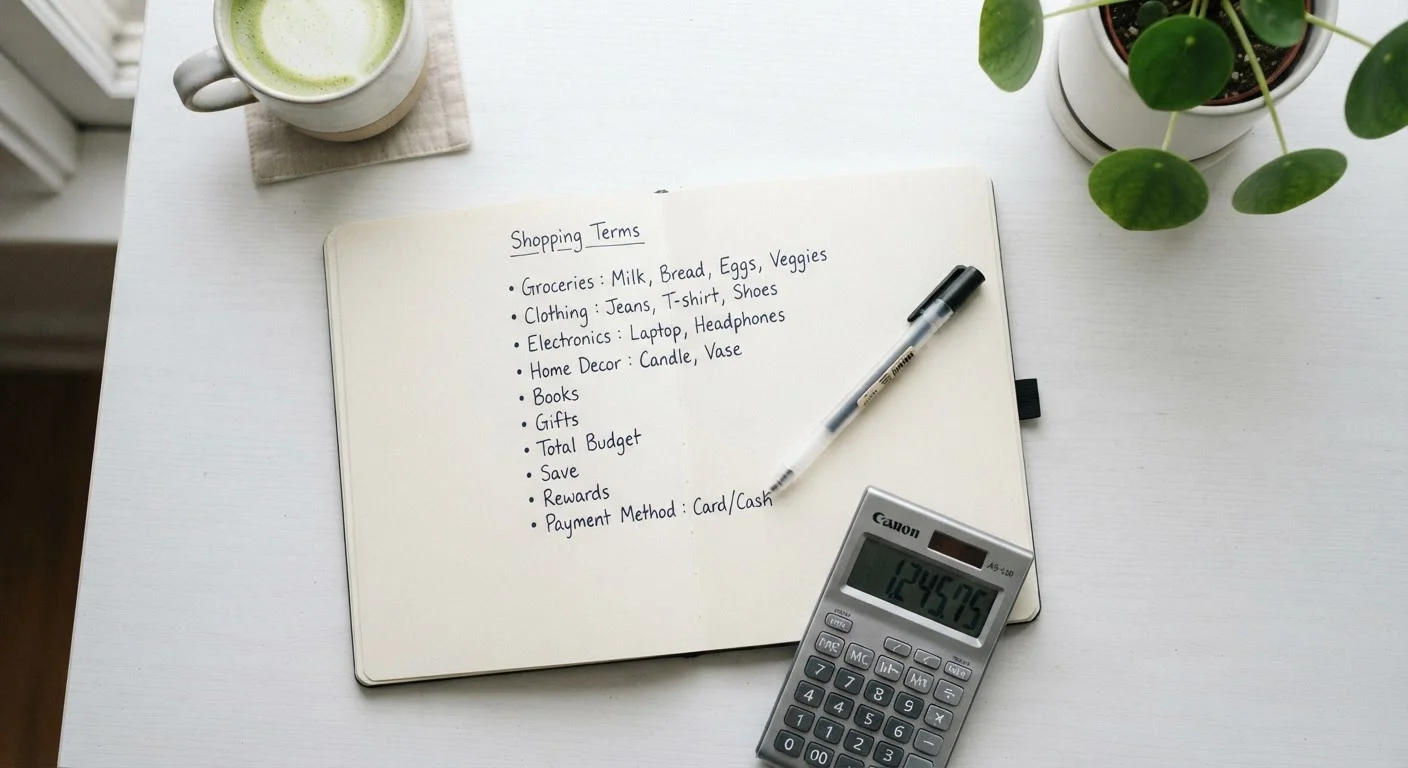 Shopping Terms
• Groceries : Milk, Bread, Eggs, Veggies
• Clothing : Jeans, T-shirt, Shoes
• Electronics : Laptop, Headphones
• Home Decor : Candle, Vase
• Books
• Gifts
• Total Budget
• Save
• Rewards
• Payment Method : Card/Cash
Canon
1,245.75
MC
7 7 8 9 ÷
4 4 5 6 ×
1 1 2 3 −
0 00